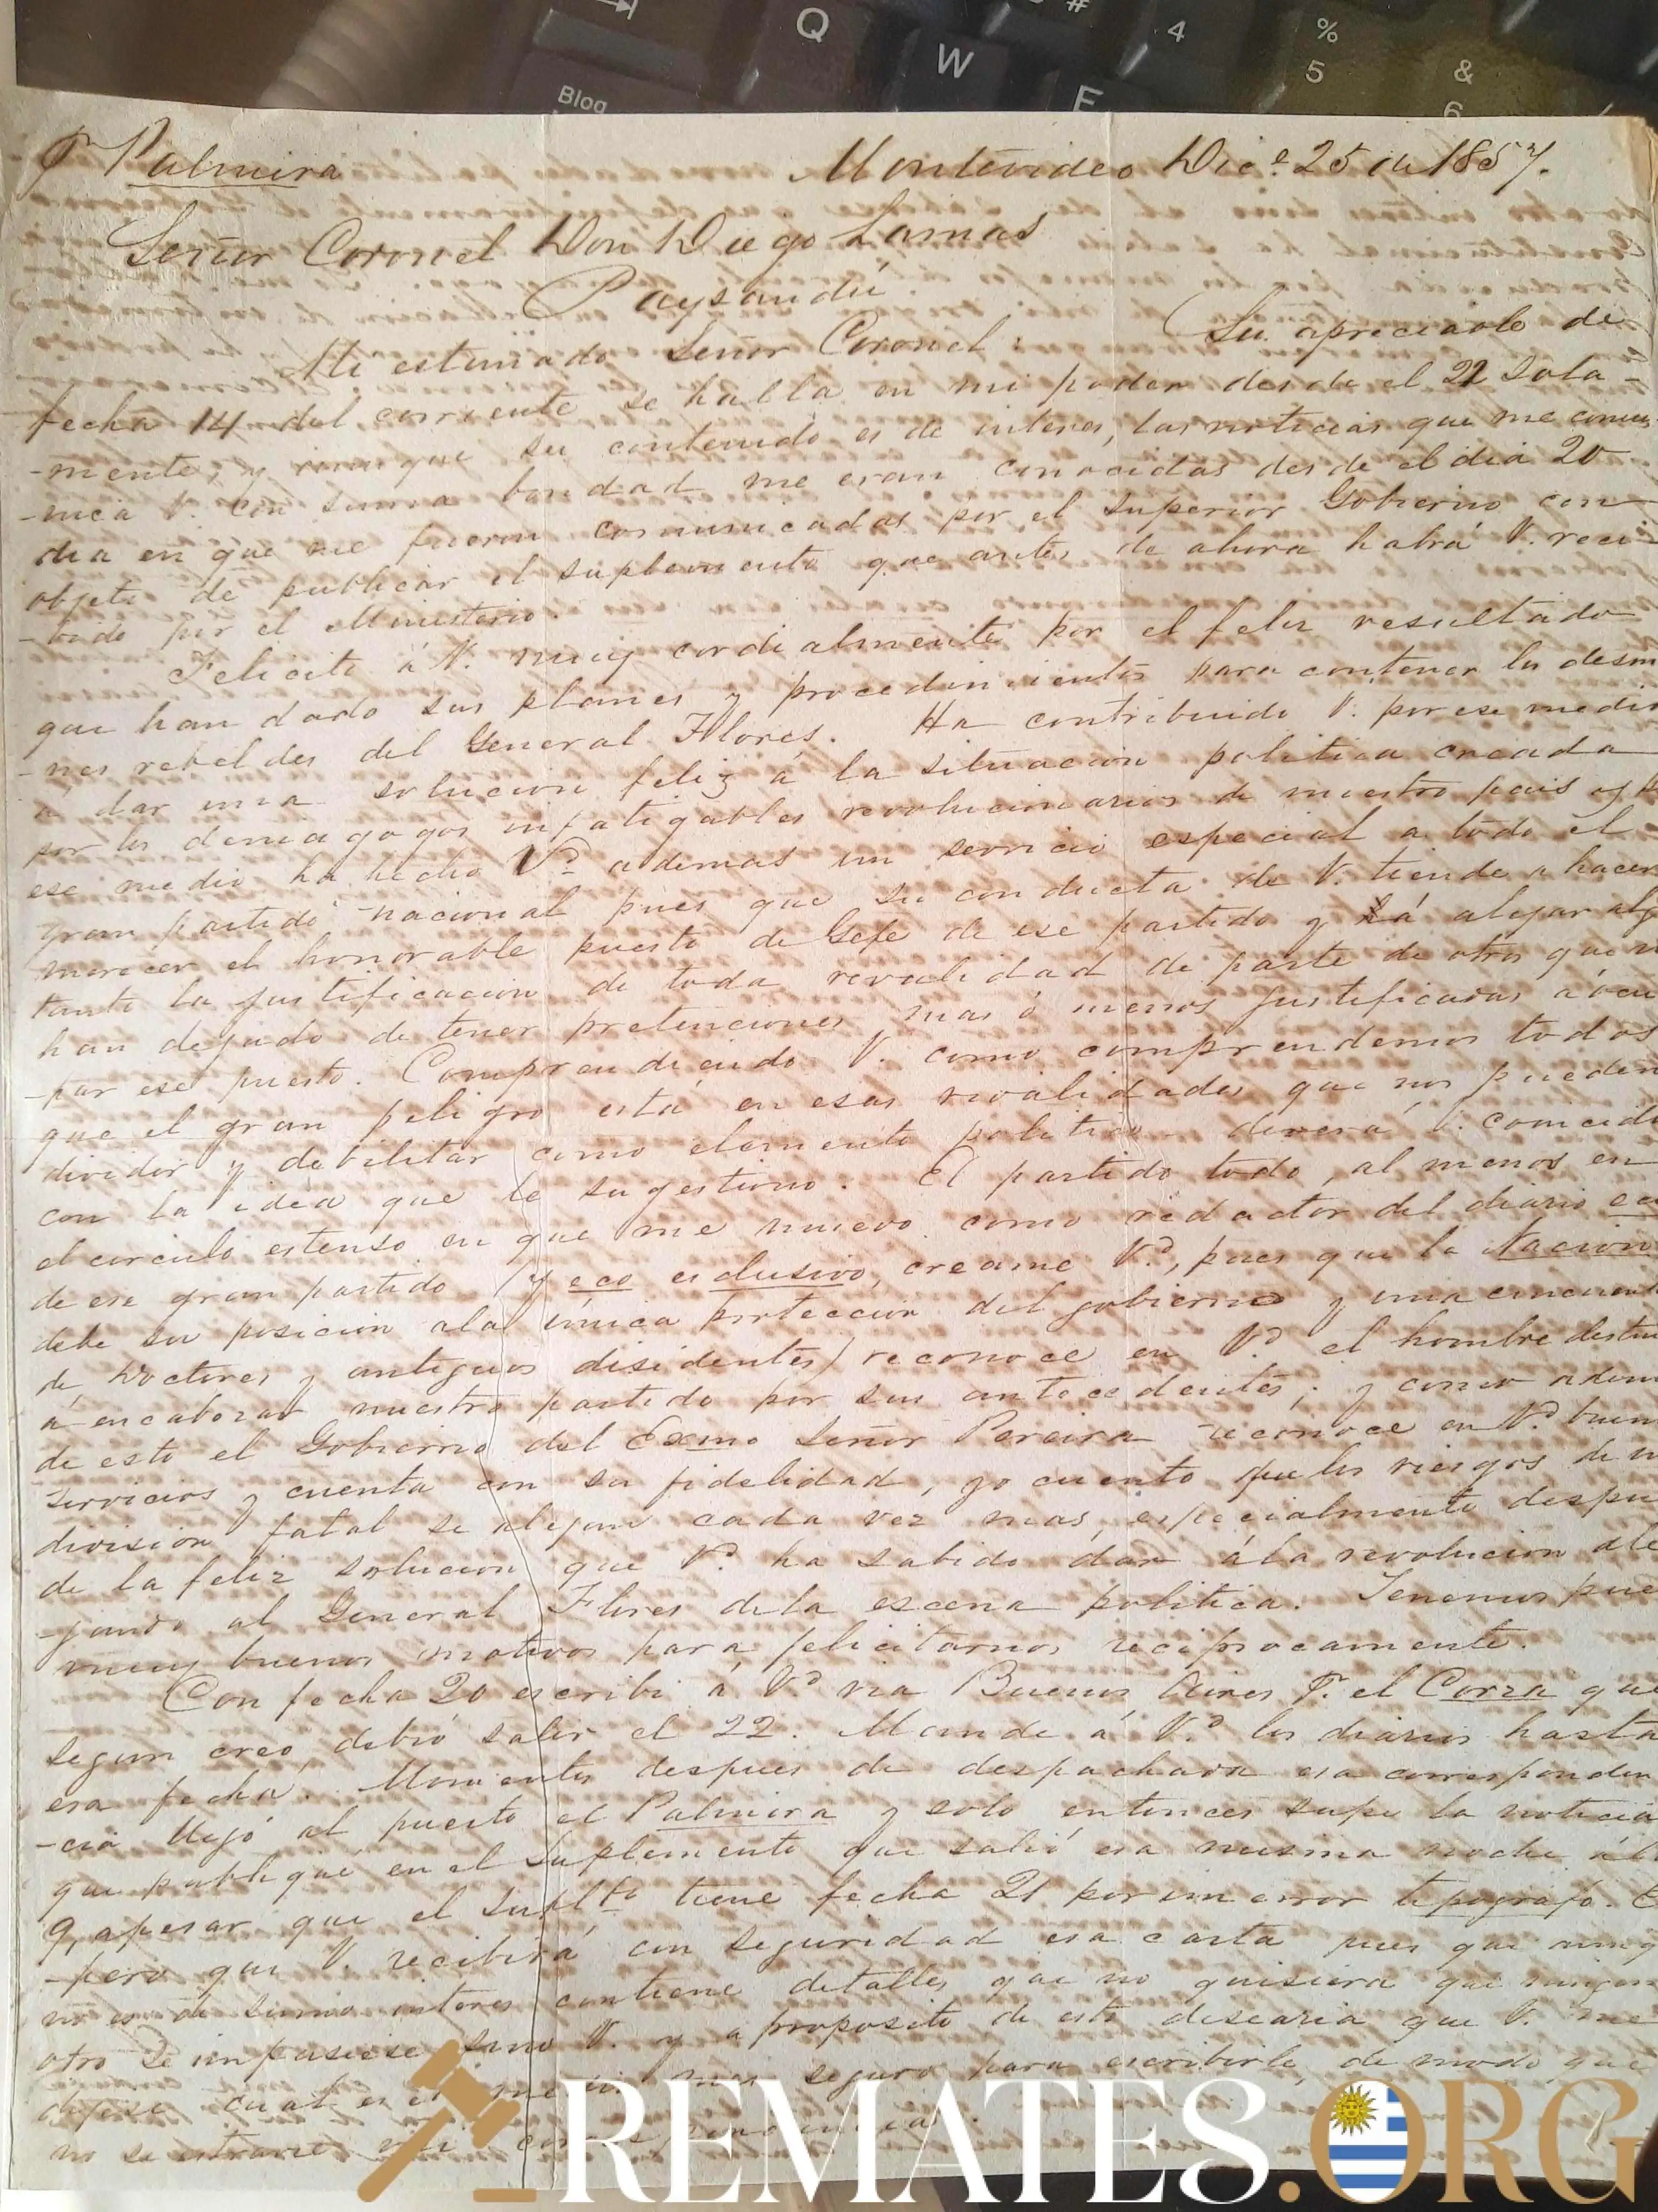 Q
W
E
#
4
%
5
&
6
Blog
Pr Palmira Montevideo Dice 25 de 1857.
Señor Coronel Don Diego Lamas
Paysandú
Mi estimado Señor Coronel: Su apreciable de
fecha 14 del corriente se halla en mi poder desde el 22 sola-
-mente; y aunque su contenido es de interes, las noticias que me comu-
-nica V. con suma bondad me eran conocidas desde el dia 20
dia en que me fueron comunicadas por el Superior Gobierno con
objeto de publicar el suplemento que antes de ahora habrá V. reci-
-bido por el Ministerio.
Felicito á V. muy cordialmente por el feliz resultado
que han dado sus planes y procedimientos para contener los desm
-nes rebeldes del General Flores. Ha contribuido V. por ese medio
á dar una solucion feliz á la situacion politica creada
por los demagogos infatigables revolucionarios de nuestro pais y p
ese medio ha hecho Vd ademas un servicio especial a todo el
gran partido nacional pues que su conducta de V. tiende a hacer
merecer el honorable puesto de Gefe de ese partido y á alejar alg
tanto la justificacion de toda revalidad de parte de otros que n
han dejado de tener pretenciones mas ó menos justificadas á ocu
-par ese puesto. Comprendiendo V. como comprendemos todos
que el gran peligro está en esas rivalidades que nos pueden
dividir y debilitar como elemento politico deverá V. coincidi
con la idea que le sugestiono. El partido todo, al menos en
el circulo estenso en que me muevo como redactor del diario eco
de ese gran partido (y eco esclusivo, creame Vd, pues que la Nacion
debe su posicion a la única proteccion del gobierno y una cincuent
de Doctores y antiguos disidentes) reconoce en Vd el hombre destin
á encabezar nuestro partido por sus antecedentes; y como adem
de esto el Gobierno del Exmo Señor Pereira reconoce en Vd buen
servicios y cuenta con su fidelidad, yo cuento que los riesgos de u
division fatal se alejan cada vez mas, especialmente despu
de la feliz solucion que Vd ha sabido dar á la revolucion ale
-jando al General Flores de la escena politica. Tenemos pue
muy buenos motivos para felicitarnos reciprocamente.
Con fecha 20 escribi á Vd via Buenos Aires Pr. el Corza que
segun creo debió salir el 22. Mande á Vd los diarios hasta
esa fecha. Momentos despues de despachada esa corresponden
-cia llegó al puerto el Palmira y solo entonces supe la noticia
que publiqué en el Suplemento que salió esa misma noche á las
9, apesar que el Suplto tiene fecha 21 por un error tipografo. E
-pero que V. recibirá con seguridad esa carta pues que aunq
no es de sumo interes contiene detalles que no quisiera que ningun
otro se impusiese sino V. y a proposito de esto desearia que V. me
dijese cual es el mas seguro para escribirle, de modo que
no se estravie
REMATES.ORG